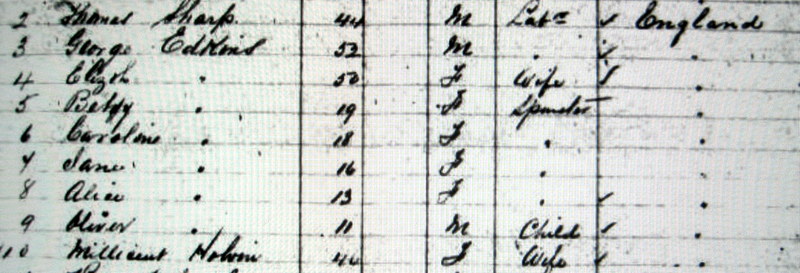 2 Thomas Sharp 44 M Labr England
3 George Edkins 53 M " "
4 Elizth " 50 F Wife "
5 Betsy " 19 F Spinster "
6 Caroline " 18 F " "
7 Jane " 16 F " "
8 Alice " 13 F " "
9 Oliver " 11 M Child "
10 Millicent F Wife "